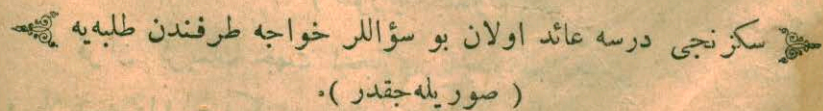 سكزنجی درسه عائد اولان بو سؤاللر خواجه طرفندن طلبه‌یه
( صوریله‌جقدر ).